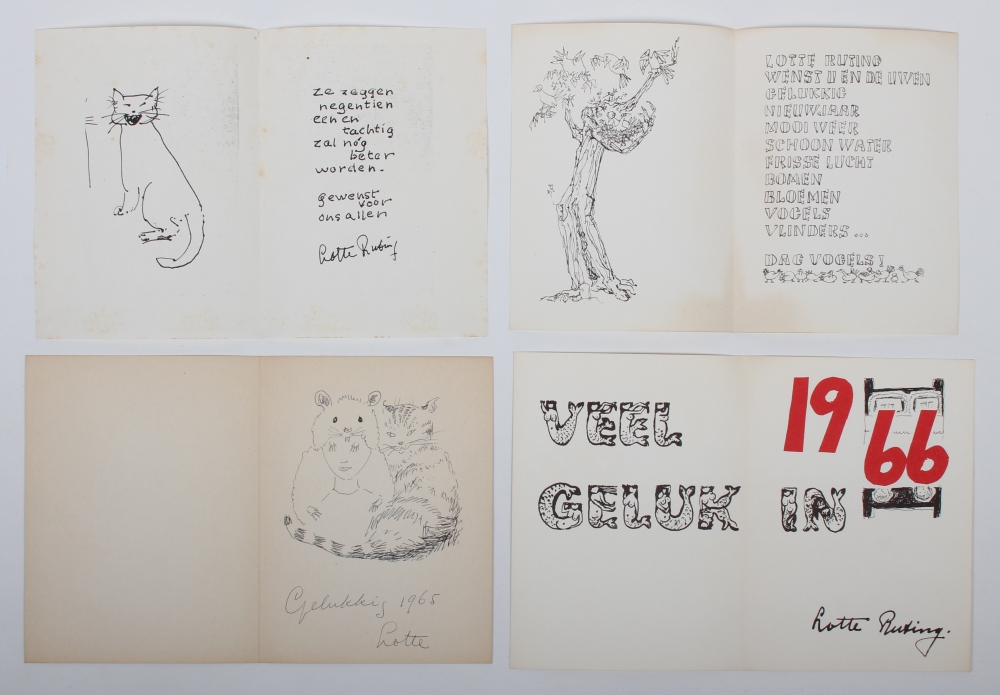 ze zeggen
negentien
een en
tachtig
zal nog
beter
worden.
gewenst
voor
ons allen
Lotte Ruting
LOTTE RUTING
WENST U EN DE UWEN
GELUKKIG
NIEUWJAAR
MOOI WEER
SCHOON WATER
FRISSE LUCHT
BOMEN
BLOEMEN
VOGELS
VLINDERS...
DAG VOGELS!
Gelukkig 1965
Lotte
VEEL 1966
GELUK IN
Lotte Ruting.